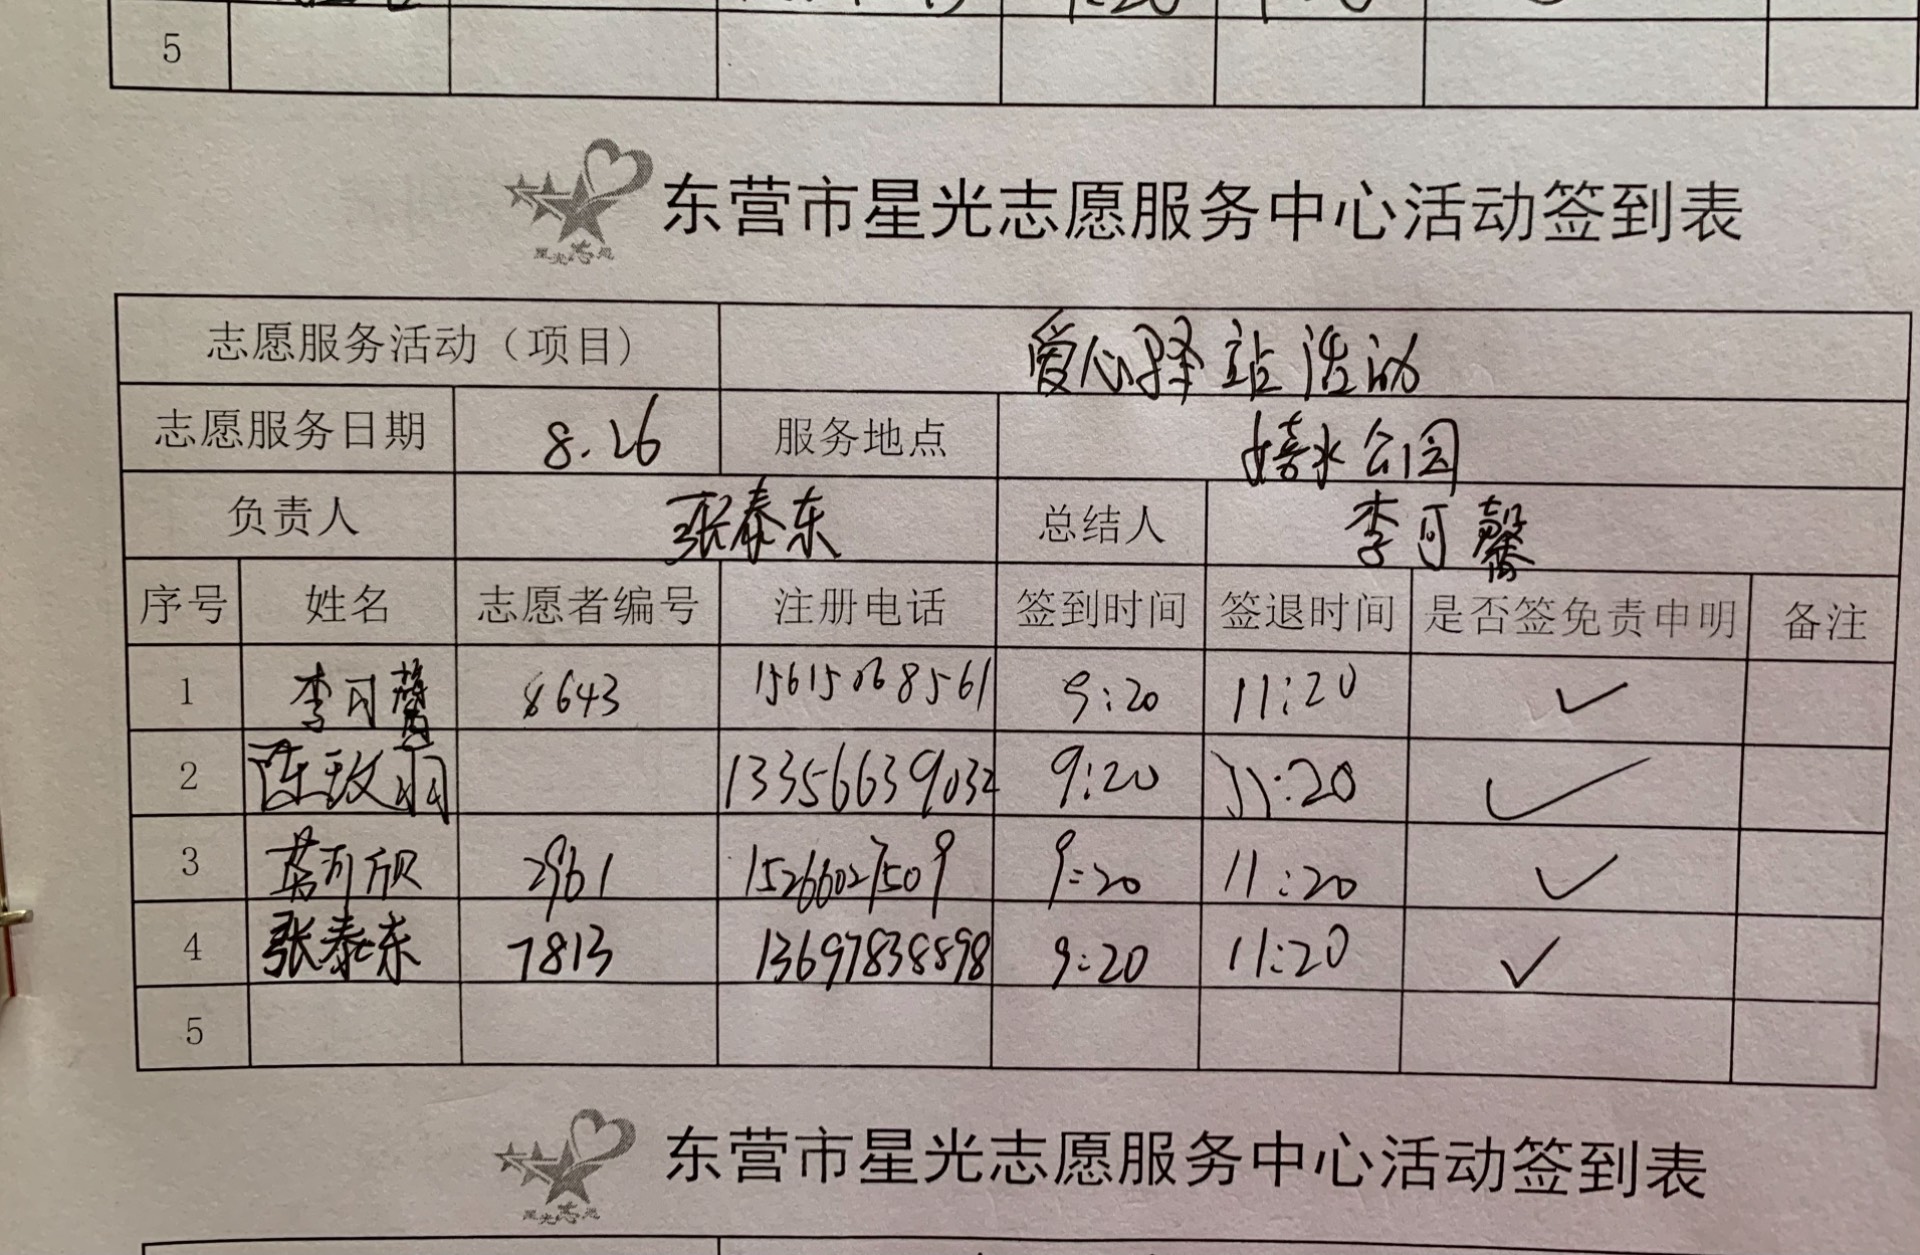 5
东营市星光志愿服务中心活动签到表
星光志愿
志愿服务活动（项目） 爱心驿站活动
志愿服务日期 8.26 服务地点 嬉水公园
负责人 张泰东 总结人 李可馨
序号 姓名 志愿者编号 注册电话 签到时间 签退时间 是否签免责申明 备注
1 李可馨 8643 15615068561 9:20 11:20 ✓
2 13356639032 9:20 11:20 ✓
3 2961 15266027509 9:20 11:20 ✓
4 张泰东 7813 13697838898 9:20 11:20 ✓
5
东营市星光志愿服务中心活动签到表
星光志愿